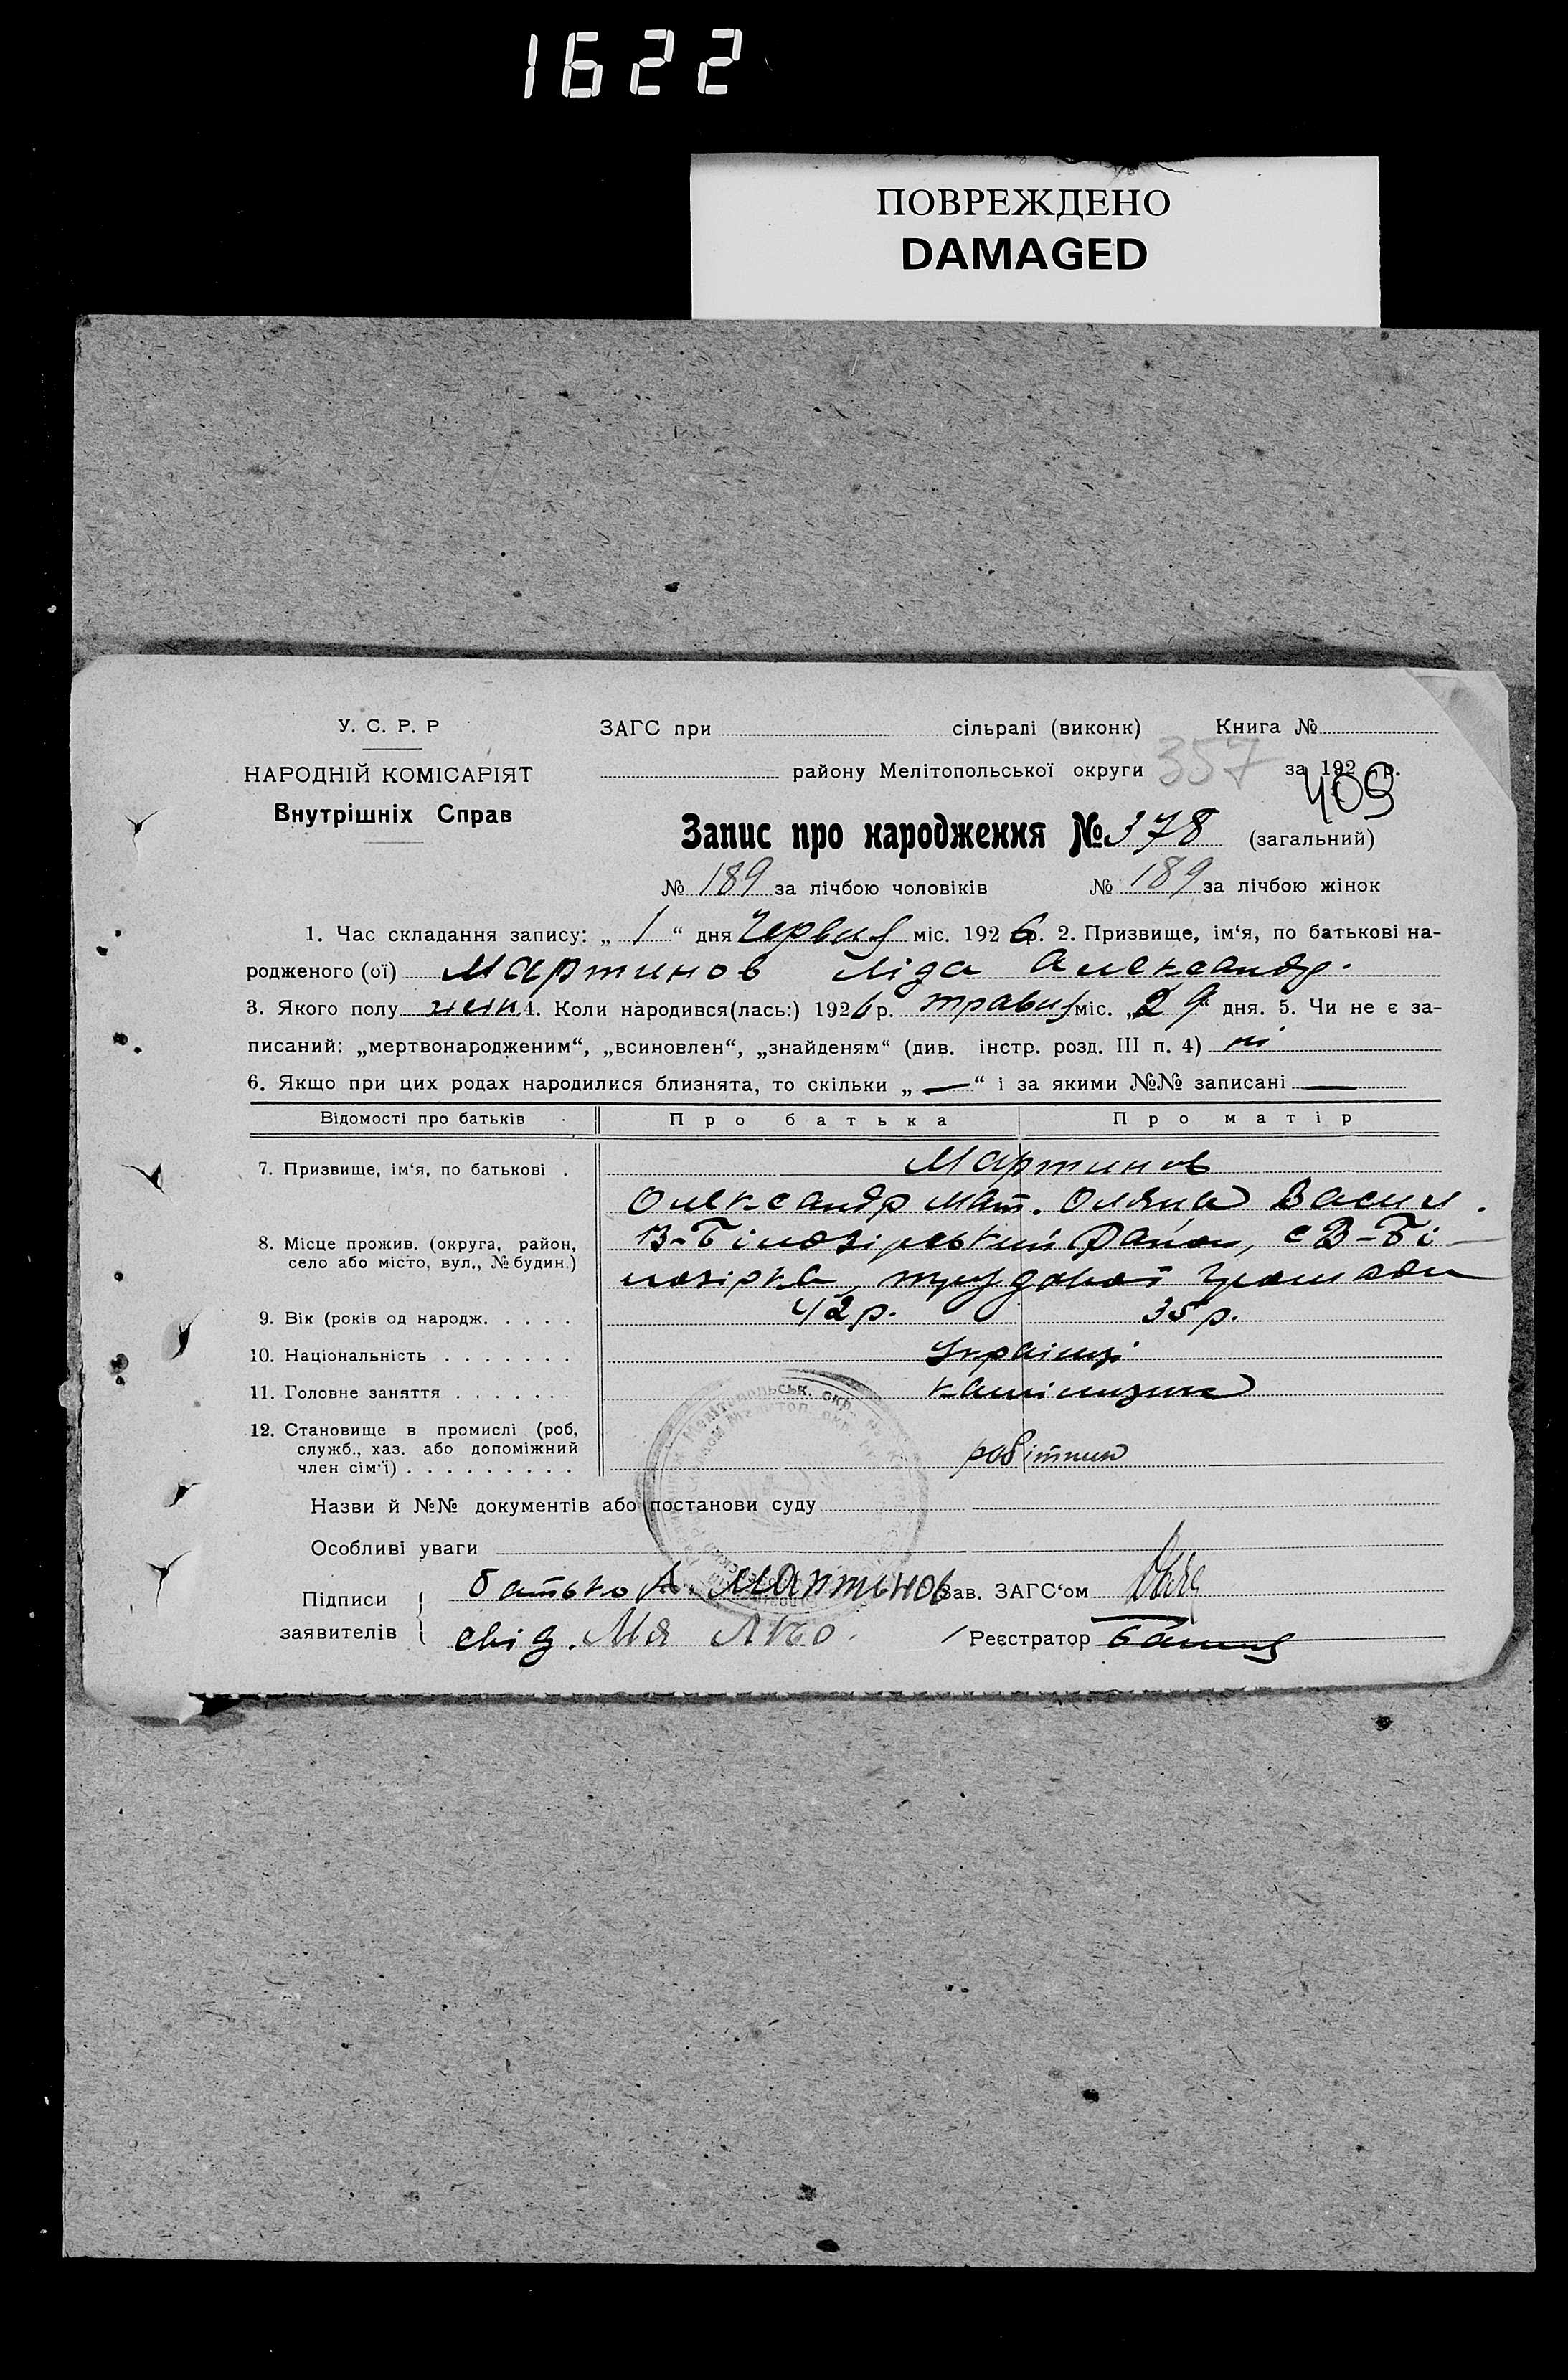 1622
ПОВРЕЖДЕНО
DAMAGED
У. С. Р. Р
НАРОДНІЙ КОМІСАРІЯТ
Внутрішніх Справ
ЗАГС при сільраді (виконк) Книга №
району Мелітопольської округи 357 за 192 р.
409
Запис про народження № 378 (загальний)
№ 189 за лічбою чоловіків № 189 за лічбою жінок
1. Час складання запису: „ 1 “ дня Червня міс. 1926 р. 2. Призвище, ім‘я, по батькові на-
родженого (ої) Мартинов Ліда Александр.
3. Якого полу жін. 4. Коли народився(лась:) 1926 р. травня міс. „29“ дня. 5. Чи не є за-
писаний: „мертвонародженим“, „всиновлен“, „знайденям“ (див. інстр. розд. III п. 4) ні
6. Якщо при цих родах народилися близнята, то скільки „ — “ і за якими №№ записані —
Відомості про батьків Про батька Про матір
7. Призвище, ім‘я, по батькові . Мартинов
Олександр Мат. Оляна Васил.
8. Місце прожив. (округа, район, село або місто, вул., № будин.) В-Білозірський Район, с В-Бі-
лозірка, трудової громади
9. Вік (років од народж. . . . . 42 р. 35 р.
10. Національність . . . . . . . Українці
11. Головне заняття . . . . . . .
12. Становище в промислі (роб, служб., хаз. або допоміжний член сім‘ї) . . . . . . . . . робітник
Назви й №№ документів або постанови суду
Особливі уваги
Підписи заявителів батько А. Мартинов Зав. ЗАГС‘ом
свід. Реєстратор